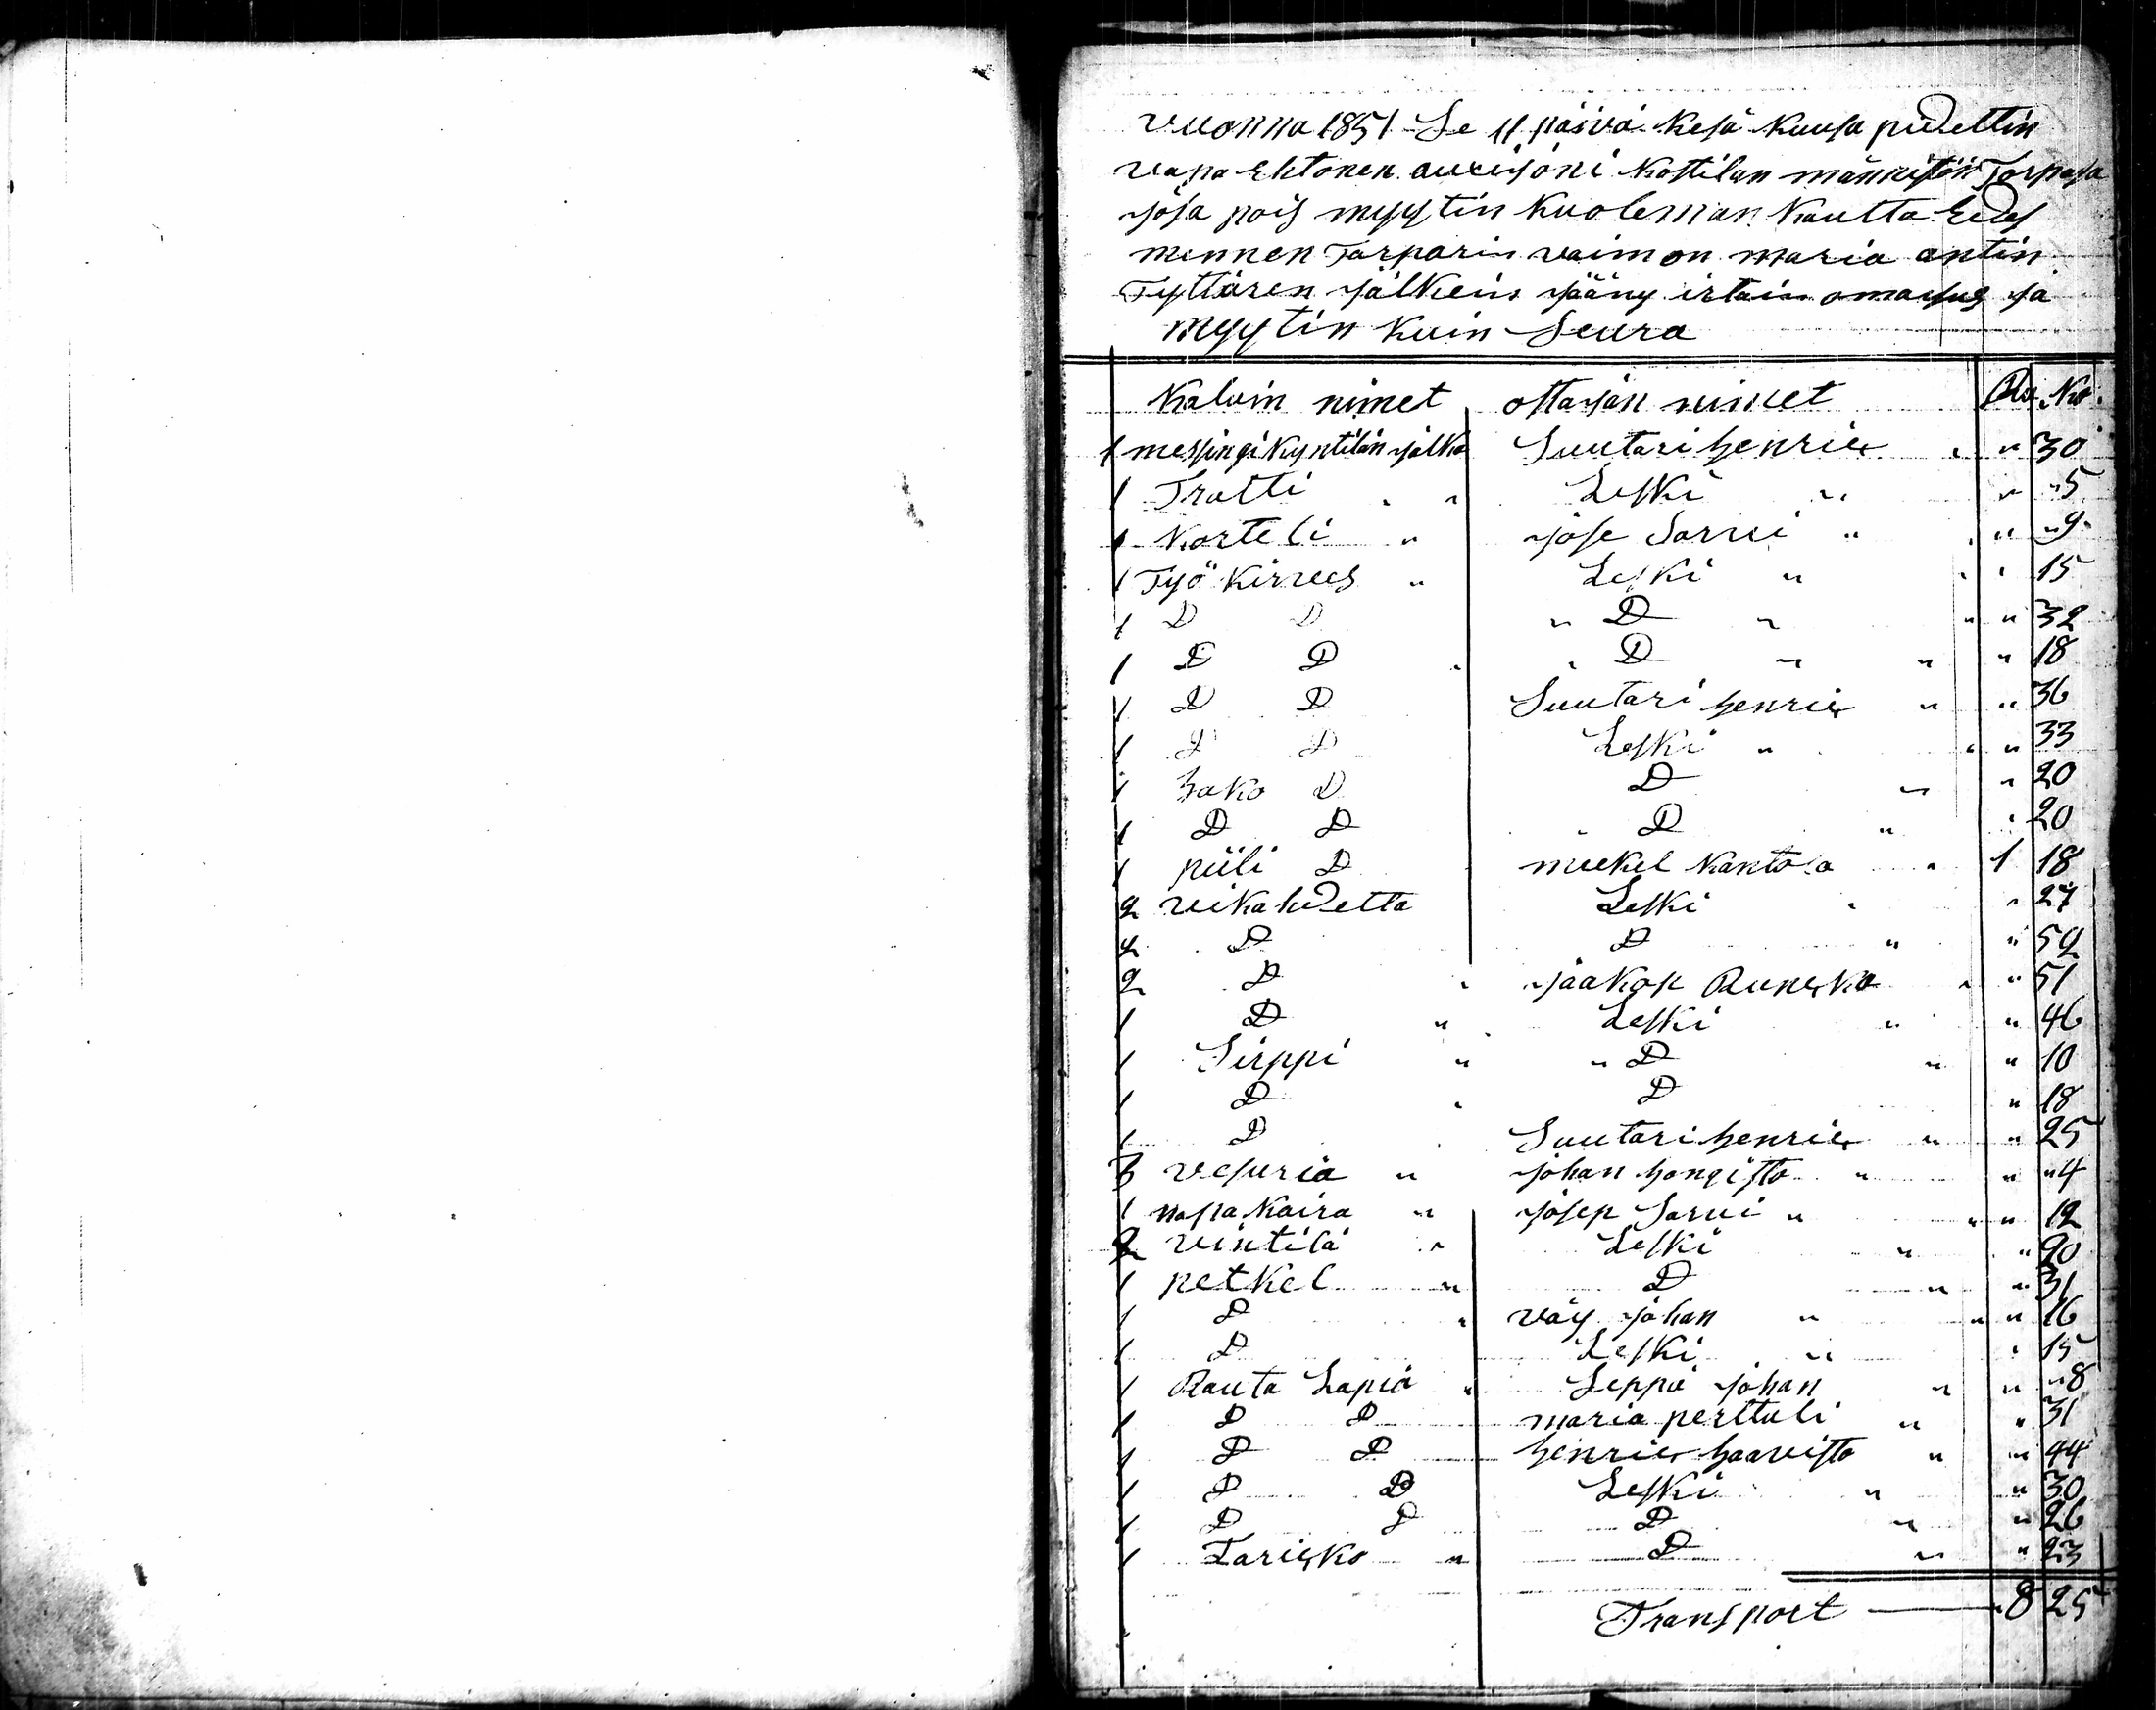 vuonna 1851 Se 11 päivä Kesä Kuusa pidettin
vapa Ehtonen auxisjoni Kottilan männistön Torpasa
josa pois myytin Kuoleman Kautta Edes
mennen Torparin vaimon maria antin
Tyttären jälkein jääny irtain omasus ja
myytin Kuin Seura
Kaluin nimet ottajan nimet Ru Ko
1 messingi Kyntilän jalka Suutari henric " 30
1 Tratti " Leski " " "5
1 Korteli " jose Sarvi " " "9
1 Työ Kirves " Leski " " 15
1 D D " D " " " 32
1 D D " D " " " 18
1 D D Suutari henric " " 36
1 D D Leski " " " 33
1 hako D D " " 20
1 D D " D " " 20
1 piili D mickel Kantola " 1 18
2 vikahdetta Leski " " 27
2 D D " " 52
2 D " jaakop Runsko " " 51
1 D " Leski " " 46
1 Sirppi " " D " " 10
1 D " D " 18
1 D Suutari henric " " 25
3 vesuria " johan hongisto " " "4
1 napa Kaira " josep Sarvi " " " 12
2 vintilä " Leski " " 90
1 petkel " D " " 31
1 D " väy johan " " " 16
1 D Leski " " 15
1 Rauta Lapia " Seppä johan " " "8
1 D D maria perttuli " " 31
1 D D henric haavisto " " 44
1 D D Leski " " 30
1 D D D " " 26
1 Tarisko " D " " 23
Transport 8 25